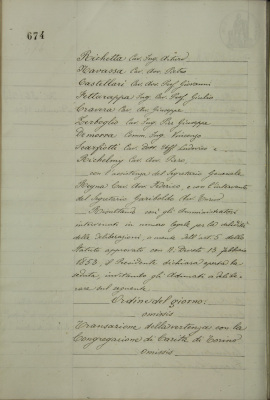 674
Richetta Cav. Ing. Arturo
Navassa Cav. Avv. Pietro
Castellari Cav. Avv. Prof. Giovanni
Fettarappa Ing. Cav. Prof. Giulio
Cravera Cav. Avv. Giuseppe
Zerboglio Cav. Ing. Pier Giuseppe
Demorra Comm. Ing. Vincenzo
Scarfiotti Cav. Uff. Lodovico e
Richelmy Cav. Avv. Piero,
con l'assistenza del Segretario Generale
Cav. Avv. Federico, e con l'intervento
del Segretario Garibaldi Avv.
Risultando così gli Amministratori
intervenuti in numero legale per la validità
delle deliberazioni, a mente dell'art. 5 dello
Statuto approvato con R. Decreto 13 febbraio
1853, il Presidente dichiara aperta la
seduta, invitando gli Adunati a delibe-
rare sul seguente
Ordine del giorno:
omissis
Transazione della vertenza con la
Congregazione di Carità di Torino
omissis